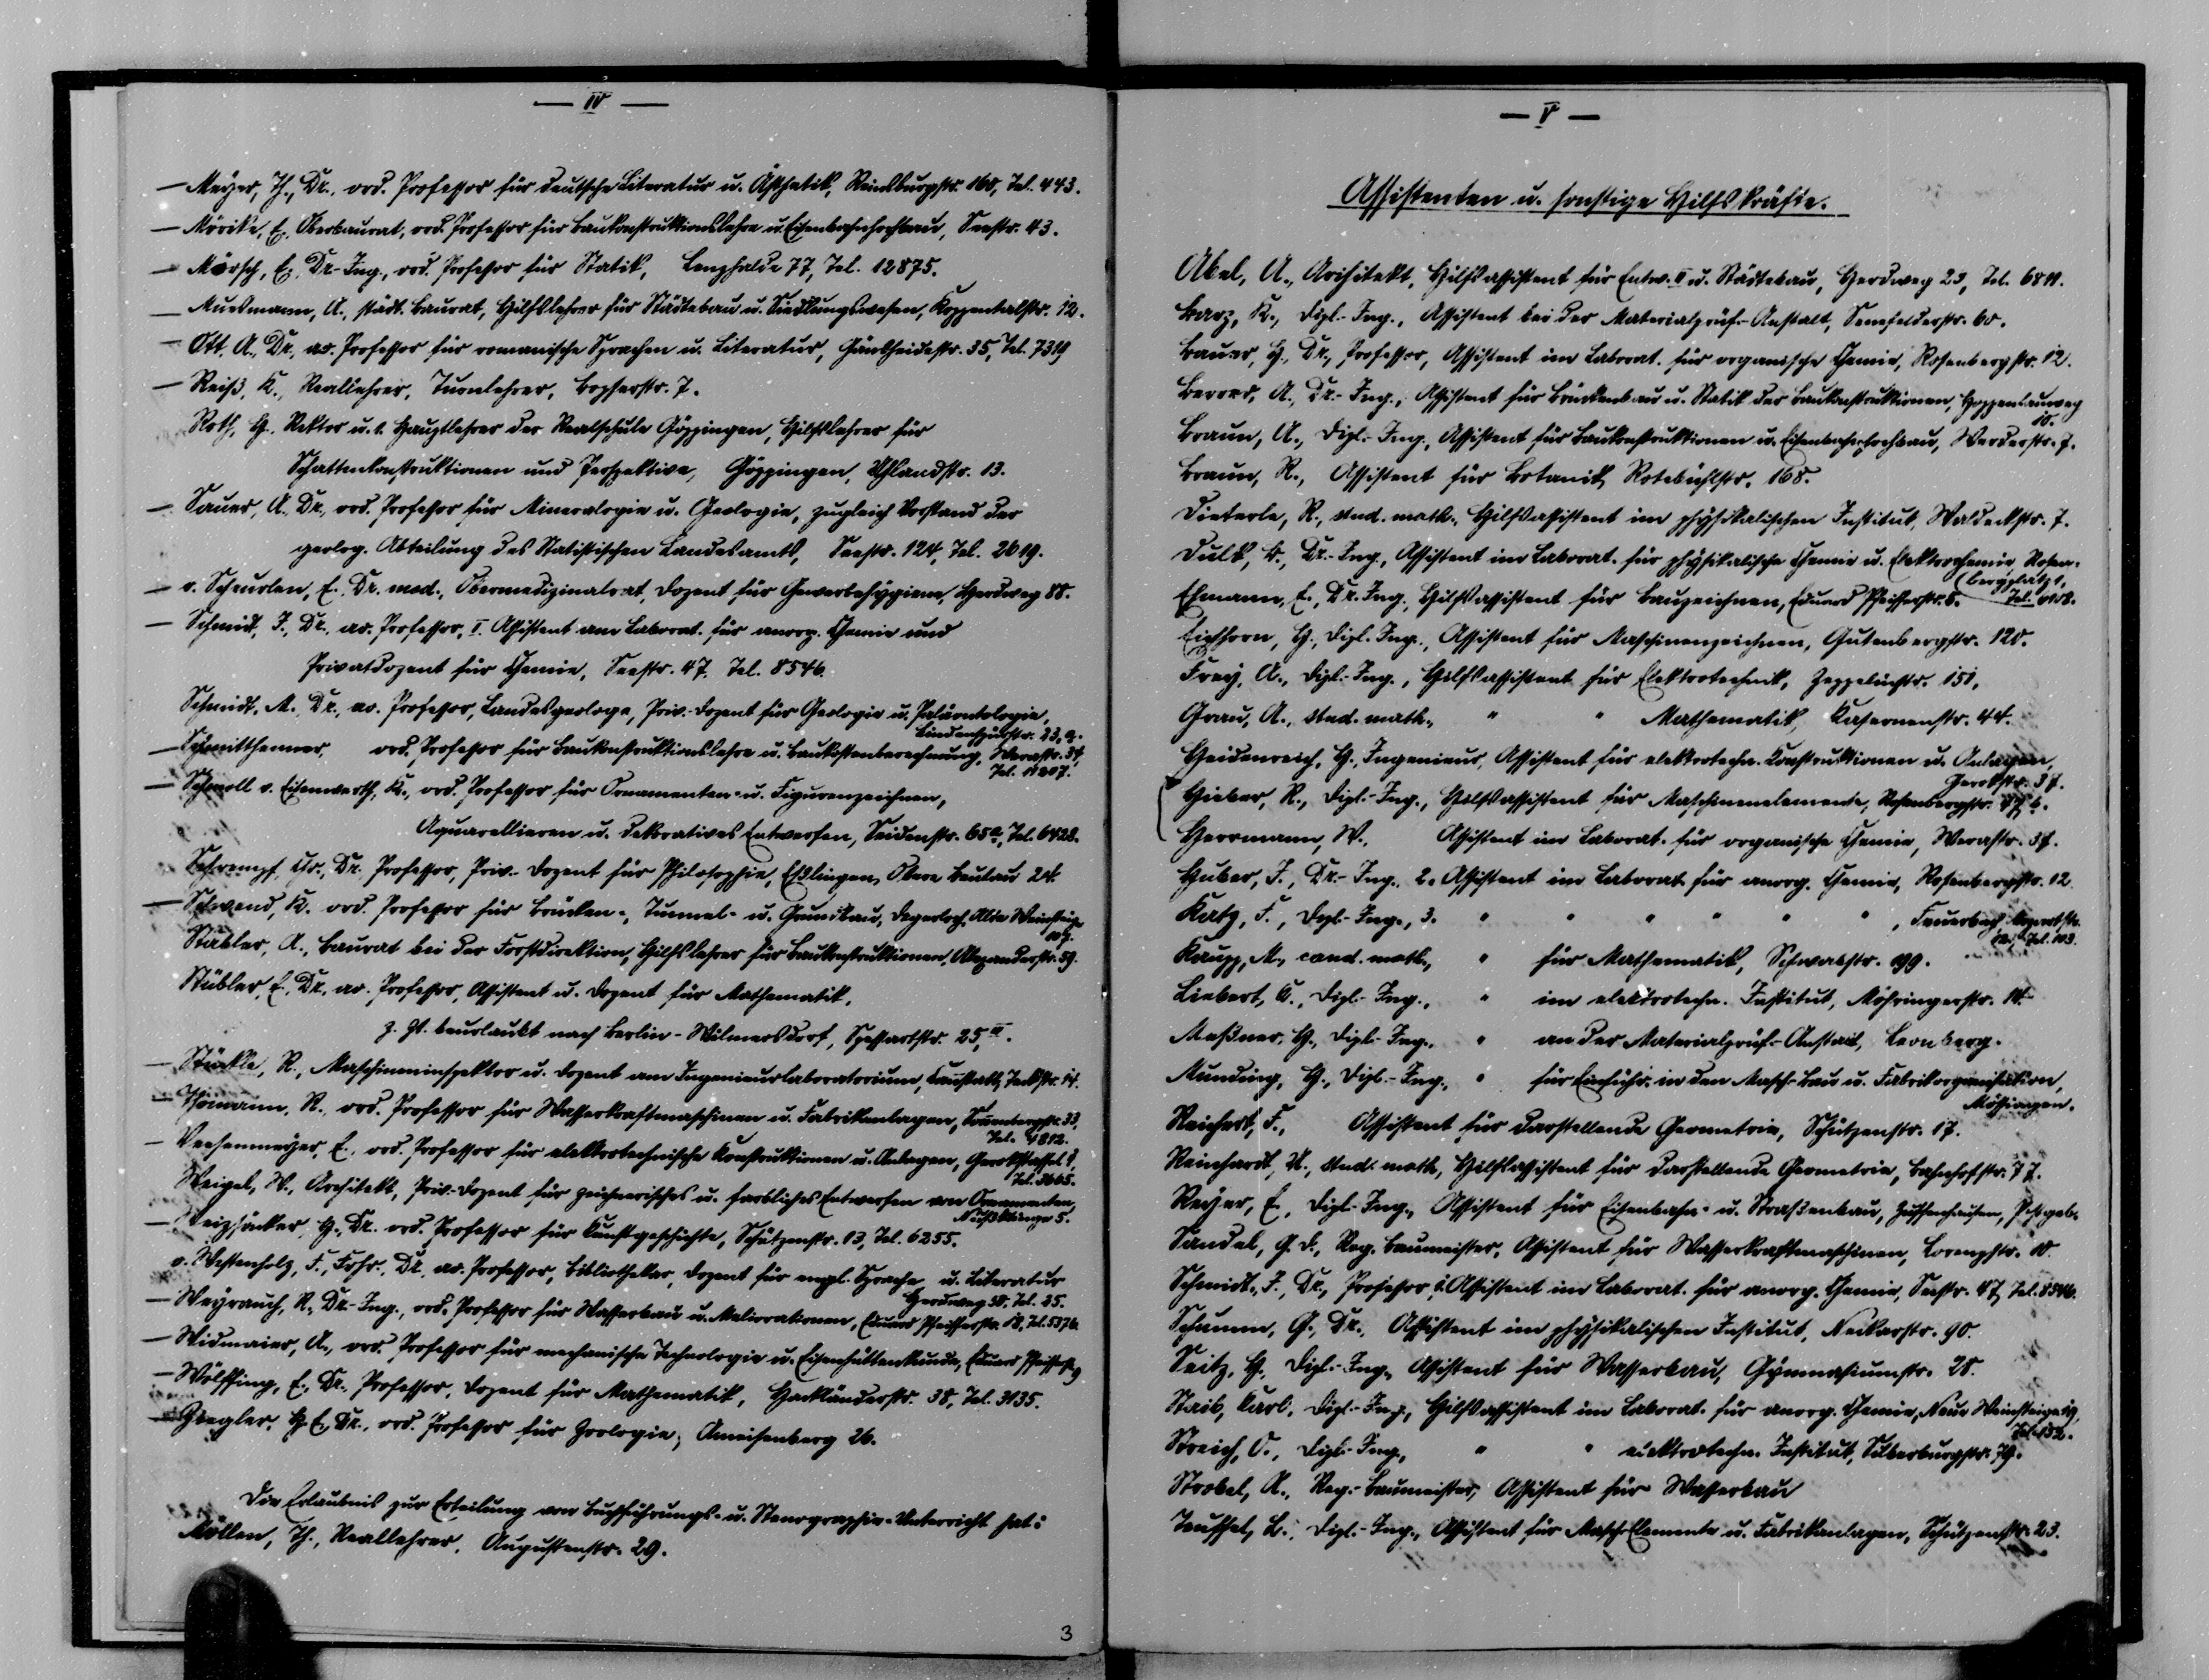 — IV —
— Meyer, Th., Dr., ord. Professor für deutsche Literatur u. Ästhetik, Reinsburgstr. 160, Tel. 443.
— Mörike, E., Oberbaurat, ord. Professor für Baukonstruktionslehre u. Eisenbahnhochbau, Seestr. 43.
— Mörsch, E., Dr.-Ing., ord. Professor für Statik, Lenzhalde 77, Tel. 12875.
— Muesmann, A., städt. Baurat, Hilfslehrer für Städtebau u. Siedlungswesen, Koppentalstr. 12.
— Ott, A., Dr., ao. Professor für romanische Sprachen u. Literatur, Gänsheidestr. 35, Tel. 7319
— Reiß, K., Reallehrer, Turnlehrer, Bopserstr. 7.
Roth, H., Rektor u. 1. Hauptlehrer der Realschule Göppingen, Hilfslehrer für
Schattenkonstruktionen und Perspektive, Göppingen, Uhlandstr. 13.
— Sauer, A., Dr., ord. Professor für Mineralogie u. Geologie, zugleich Vorstand der
geolog. Abteilung des Statistischen Landesamts, Seestr. 124, Tel. 2619.
— v. Scheurlen, E., Dr. med., Obermedizinalrat, Dozent für Gewerbehygiene, Herdweg 88.
— Schmidt, J., Dr., ao. Professor, I. Assistent am Laborat. für anorg. Chemie und
Privatdozent für Chemie, Seestr. 47. Tel. 8546.
Schmidt, M., Dr., ao. Professor, Landesgeologe, Priv.-Dozent für Geologie u. Paläontologie,
Lindenspürstr. 23, a.
— Schmitthenner, ord. Professor für Baukonstruktionslehre u. Baukostenberechnung, Werastr. 34,
Tel. 11207.
— Schmoll v. Eisenwerth, K., ord. Professor für Ornamenten- u. Figurenzeichnen,
Aquarellieren u. dekoratives Entwerfen, Seidenstr. 65a, Tel. 6428.
Schrempf, Chr., Dr., Professor, Priv.-Dozent für Philosophie, Eßlingen, Obere Beutau 24.
— Schwend, K., ord. Professor für Brücken-, Tunnel- u. Grundbau, Degerloch, Alte Weinsteige
Stäbler, A., Baurat bei der Forstdirektion, Hilfslehrer für Baukonstruktionen, Alexanderstr. 59.
Stübler, E., Dr., ao. Professor, Assistent u. Dozent für Mathematik,
z. Zt. beurlaubt nach Berlin-Wilmersdorf, Spessartstr. 25, III.
— Stückle, R., Maschineninspektor u. Dozent am Ingenieurlaboratorium, Canstatt, Teckstr. 14.
— Thomann, R., ord. Professor für Wasserkraftmaschinen u. Fabrikanlagen, 33,
Tel. 4812.
— Veesenmeyer, E., ord. Professor für elektrotechnische Konstruktionen u. Anlagen, Gerokstaffel 1,
Tel. 3665.
Weigel, W., Architekt, Priv.-Dozent für zeichnerisches u. farbliches Entwerfen von Ornamenten,
Nußklinge 5.
— Weizsäcker, H., Dr., ord. Professor für Kunstgeschichte, Schützenstr. 13, Tel. 6255.
v. Westenholz, F., Frhr., Dr., ao. Professor, Bibliothekar, Dozent für engl. Sprache u. Literatur
Herdweg 58, Tel. 25.
— Weyrauch, R., Dr.-Ing., ord. Professor für Wasserbau u. Meliorationen, Eduard Pfeifferstr. 18, Tel. 5376
— Widmaier, A., ord. Professor für mechanische Technologie u. Eisenhüttenkunde, Eduard Pfeifferstr. 9
— Wölffing, E., Dr., Professor, Dozent für Mathematik, Hackländerstr. 38, Tel. 3135.
— Ziegler, H. E., Dr., ord. Professor für Zoologie, Ameisenberg 26.
Die Erlaubnis zur Erteilung von Buchführungs- u. Stenographie-Unterricht hat:
Möllen, Th., Reallehrer, Augustenstr. 29.
3
— V —
Assistenten u. sonstige Hilfskräfte.
Abel, A., Architekt, Hilfsassistent für Entw. II u. Städtebau, Herdweg 23, Tel. 6811.
Barz, K., Dipl.-Ing., Assistent bei der Materialprüf.-Anstalt, Senefelderstr. 60.
Bauer, H., Dr., Professor, Assistent im Laborat. für organische Chemie, Rosenbergstr. 12.
Berrer, A., Dr.-Ing., Assistent für Brückenbau u. Statik der Baukonstruktionen, Hoppenlauweg
10.
Braun, A., Dipl.-Ing., Assistent für Baukonstruktionen u. Eisenbahnhochbau, Werderstr. 7.
Braun, R., Assistent für Botanik, Rotebühlstr. 168.
Dieterle, R., stud. math., Hilfsassistent im physikalischen Institut, Waldeckstr. 7.
Dulk, K., Dr.-Ing., Assistent im Laborat. für physikalische Chemie u. Elektrochemie, Rosen-
(bergplatz 1,
Ehmann, E., Dr.-Ing., Hilfsassistent für Bauzeichnen, Eduard Pfeifferstr. 8.
Eichhorn, H., Dipl.-Ing., Assistent für Maschinenzeichnen, Gutenbergstr. 120.
Frey, A., Dipl.-Ing., Hilfsassistent für Elektrotechnik, Zeppelinstr. 151.
Grau, A., stud. math., " " Mathematik, Kasernenstr. 44.
Heidenreich, H., Ingenieur, Assistent für elektrotechn. Konstruktionen u. Anlagen,
Gerokstr. 37.
Hieber, R., Dipl.-Ing., Hilfsassistent für Maschinenelemente, Rosenbergstr.
Herrmann, W., Assistent im Laborat. für organische Chemie, Werastr. 37.
Huber, J., Dr.-Ing., 2. Assistent im Laborat. für anorg. Chemie, Rosenbergstr. 12
Katz, F., Dipl.-Ing., 3. " " " " " " , Feuerbach,
Tel. 103.
Kaupp, M., cand. math., " für Mathematik, Schwabstr. 199.
Liebert, K., Dipl.-Ing., " im elektrotechn. Institut, Möhringerstr.
Meßner, H., Dipl.-Ing., " an der Materialprüf.-Anstalt, Leonberg.
Munding, H., Dipl.-Ing., " für Einführ. in den Masch.-Bau u. Fabrikorganisation,
Mössingen.
Reichert, F., Assistent für darstellende Geometrie, Schützenstr. 17.
Reinhardt, U., stud. math., Hilfsassistent für darstellende Geometrie, Bahnhofstr. 77.
Reyer, E., Dipl.-Ing., Assistent für Eisenbahn- u. Straßenbau, Zuffenhausen, Postgeb.
Sandel, G. D., Reg. Baumeister, Assistent für Wasserkraftmaschinen, Lorenzstr. 10.
Schmidt, J., Dr., Professor, I. Assistent im Laborat. für anorg. Chemie, Seestr. 47, Tel. 8546.
Schumm, G., Dr., Assistent im physikalischen Institut, Neckarstr. 90.
Seitz, H., Dipl.-Ing., Assistent für Wasserbau, Gymnasiumstr. 28.
Staib, Karl, Dipl.-Ing., Hilfsassistent im Laborat. für anorg. Chemie, Neue Weinsteige 19,
Streich, O., Dipl.-Ing., " " elektrotechn. Institut, Silberburgstr. 79.
Strobel, A., Reg.-Baumeister, Assistent für Wasserbau
Teuffel, L., Dipl.-Ing., Assistent für Masch.-Elemente u. Fabrikanlagen, Schützenstr. 23.